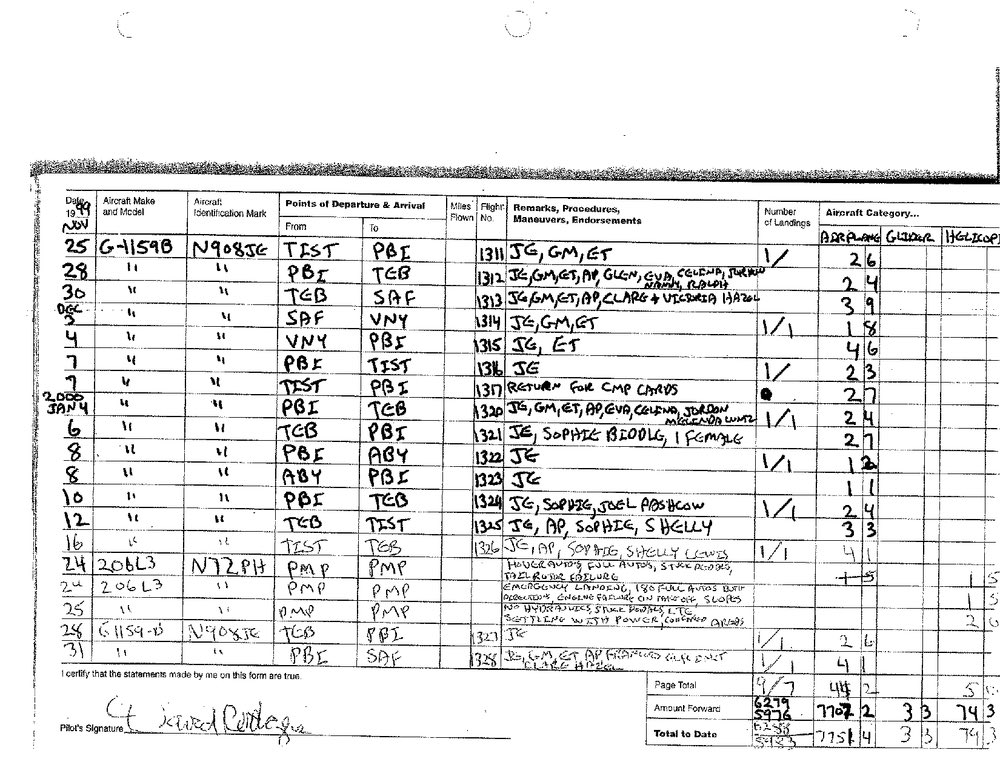 Date 1999 Aircraft Make and Model Aircraft Identification Mark Points of Departure & Arrival Miles Flown Flight No. Remarks, Procedures, Maneuvers, Endorsements Number of Landings Aircraft Category...
NOV From To AIRPLANE GLIDER HELICOPT
25 G-1159B N908JE TIST PBI 1311 JE, GM, ET 1/ 2 6
28 " " PBI TEB 1312 JE, GM, ET, AP, GLEN, EVA, CELINA, JORDAN 2 4
NANNY, RALPH
30 " " TEB SAF 1313 JE, GM, ET, AP, CLARE + VICTORIA HAZEL 3 9
DEC
3 " " SAF VNY 1314 JE, GM, ET 1/1 1 8
4 " " VNY PBI 1315 JE, ET 4 6
7 " " PBI TIST 1316 JE 1/ 2 3
7 " " TIST PBI 1317 RETURN FOR CMP CARDS 2 7
2000
JAN 4 " " PBI TEB 1320 JE, GM, ET, AP, EVA, CELINA, JORDON 1/1 2 4
MELINDA LUNTZ
6 TEB PBI 1321 JE, SOPHIE BIDDLE, 1 FEMALE 2 7
8 " " PBI ABY 1322 JE 1/1 1 2
8 " " ABY PBI 1323 JE 1 1
10 " " PBI TEB 1324 JE, SOPHIE, JOEL PASHCOW 1/1 2 4
12 " " TEB TIST 1325 JE, AP, SOPHIE, SHELLY 3 3
16 " " TIST TEB 1326 JE, AP, SOPHIE, SHELLY LEWIS 1/1 4 1
24 206L3 N72PH PMP PMP HOVER AUTOS, FULL AUTOS, STUCK PEDALS, 1 5 1 5
TAIL ROTOR FAILURE
24 206L3 " PMP PMP EMERGENCY LANDING, 180 FULL AUTOS BOTH 1 5
DIRECTIONS, ENGINE FAILURE ON TAKE OFF, SLOPES
25 " " PMP PMP NO HYDRAULICS, STUCK PEDALS, LTE, 2 0
SETTLING WITH POWER, CONFINED AREAS
28 G-1159-B N908JE TEB PBI 1327 JE 1/1 2 6
31 " " PBI SAF 1328 JE, GM, ET, AP 1/1 4 1
CLARE HAZEL
I certify that the statements made by me on this form are true.
Page Total 9/7 44 2 5
Amount Forward 6279 5976 7707 2 3 3 74 3
Pilot's Signature Total to Date 7751 4 3 3 79 3